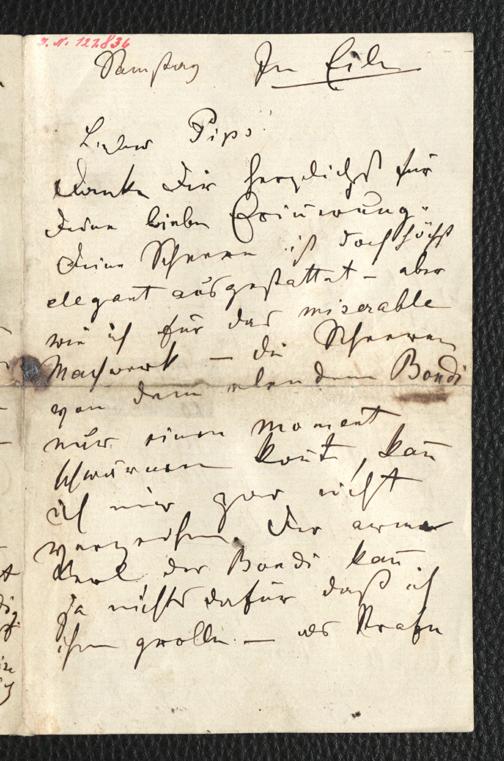 J. N. 122836
Samstag In Eile
Lieber Pips!
danke dir herzlichst für
deine lieben Erinnerung.
deine Scheere ist doch höchst
elegant ausgestattet – aber
wie ich für das miserable
Machwerk – die Scheeren
von dem elendem Bondi
nur einen moment
schwärmen kont, kan̄
ich mir gar nicht
verzeihen. Der arme
Kerl der Bondi kan̄
ja nichts dafür daß ich
ihm grolle. –